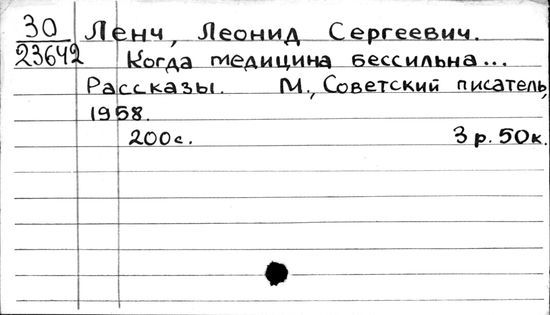 30 Ленч, Леонид Сергеевич.
23642 Когда медицина бессильна...
Рассказы. М., Советский писатель,
1958.
200с. 3р. 50к.